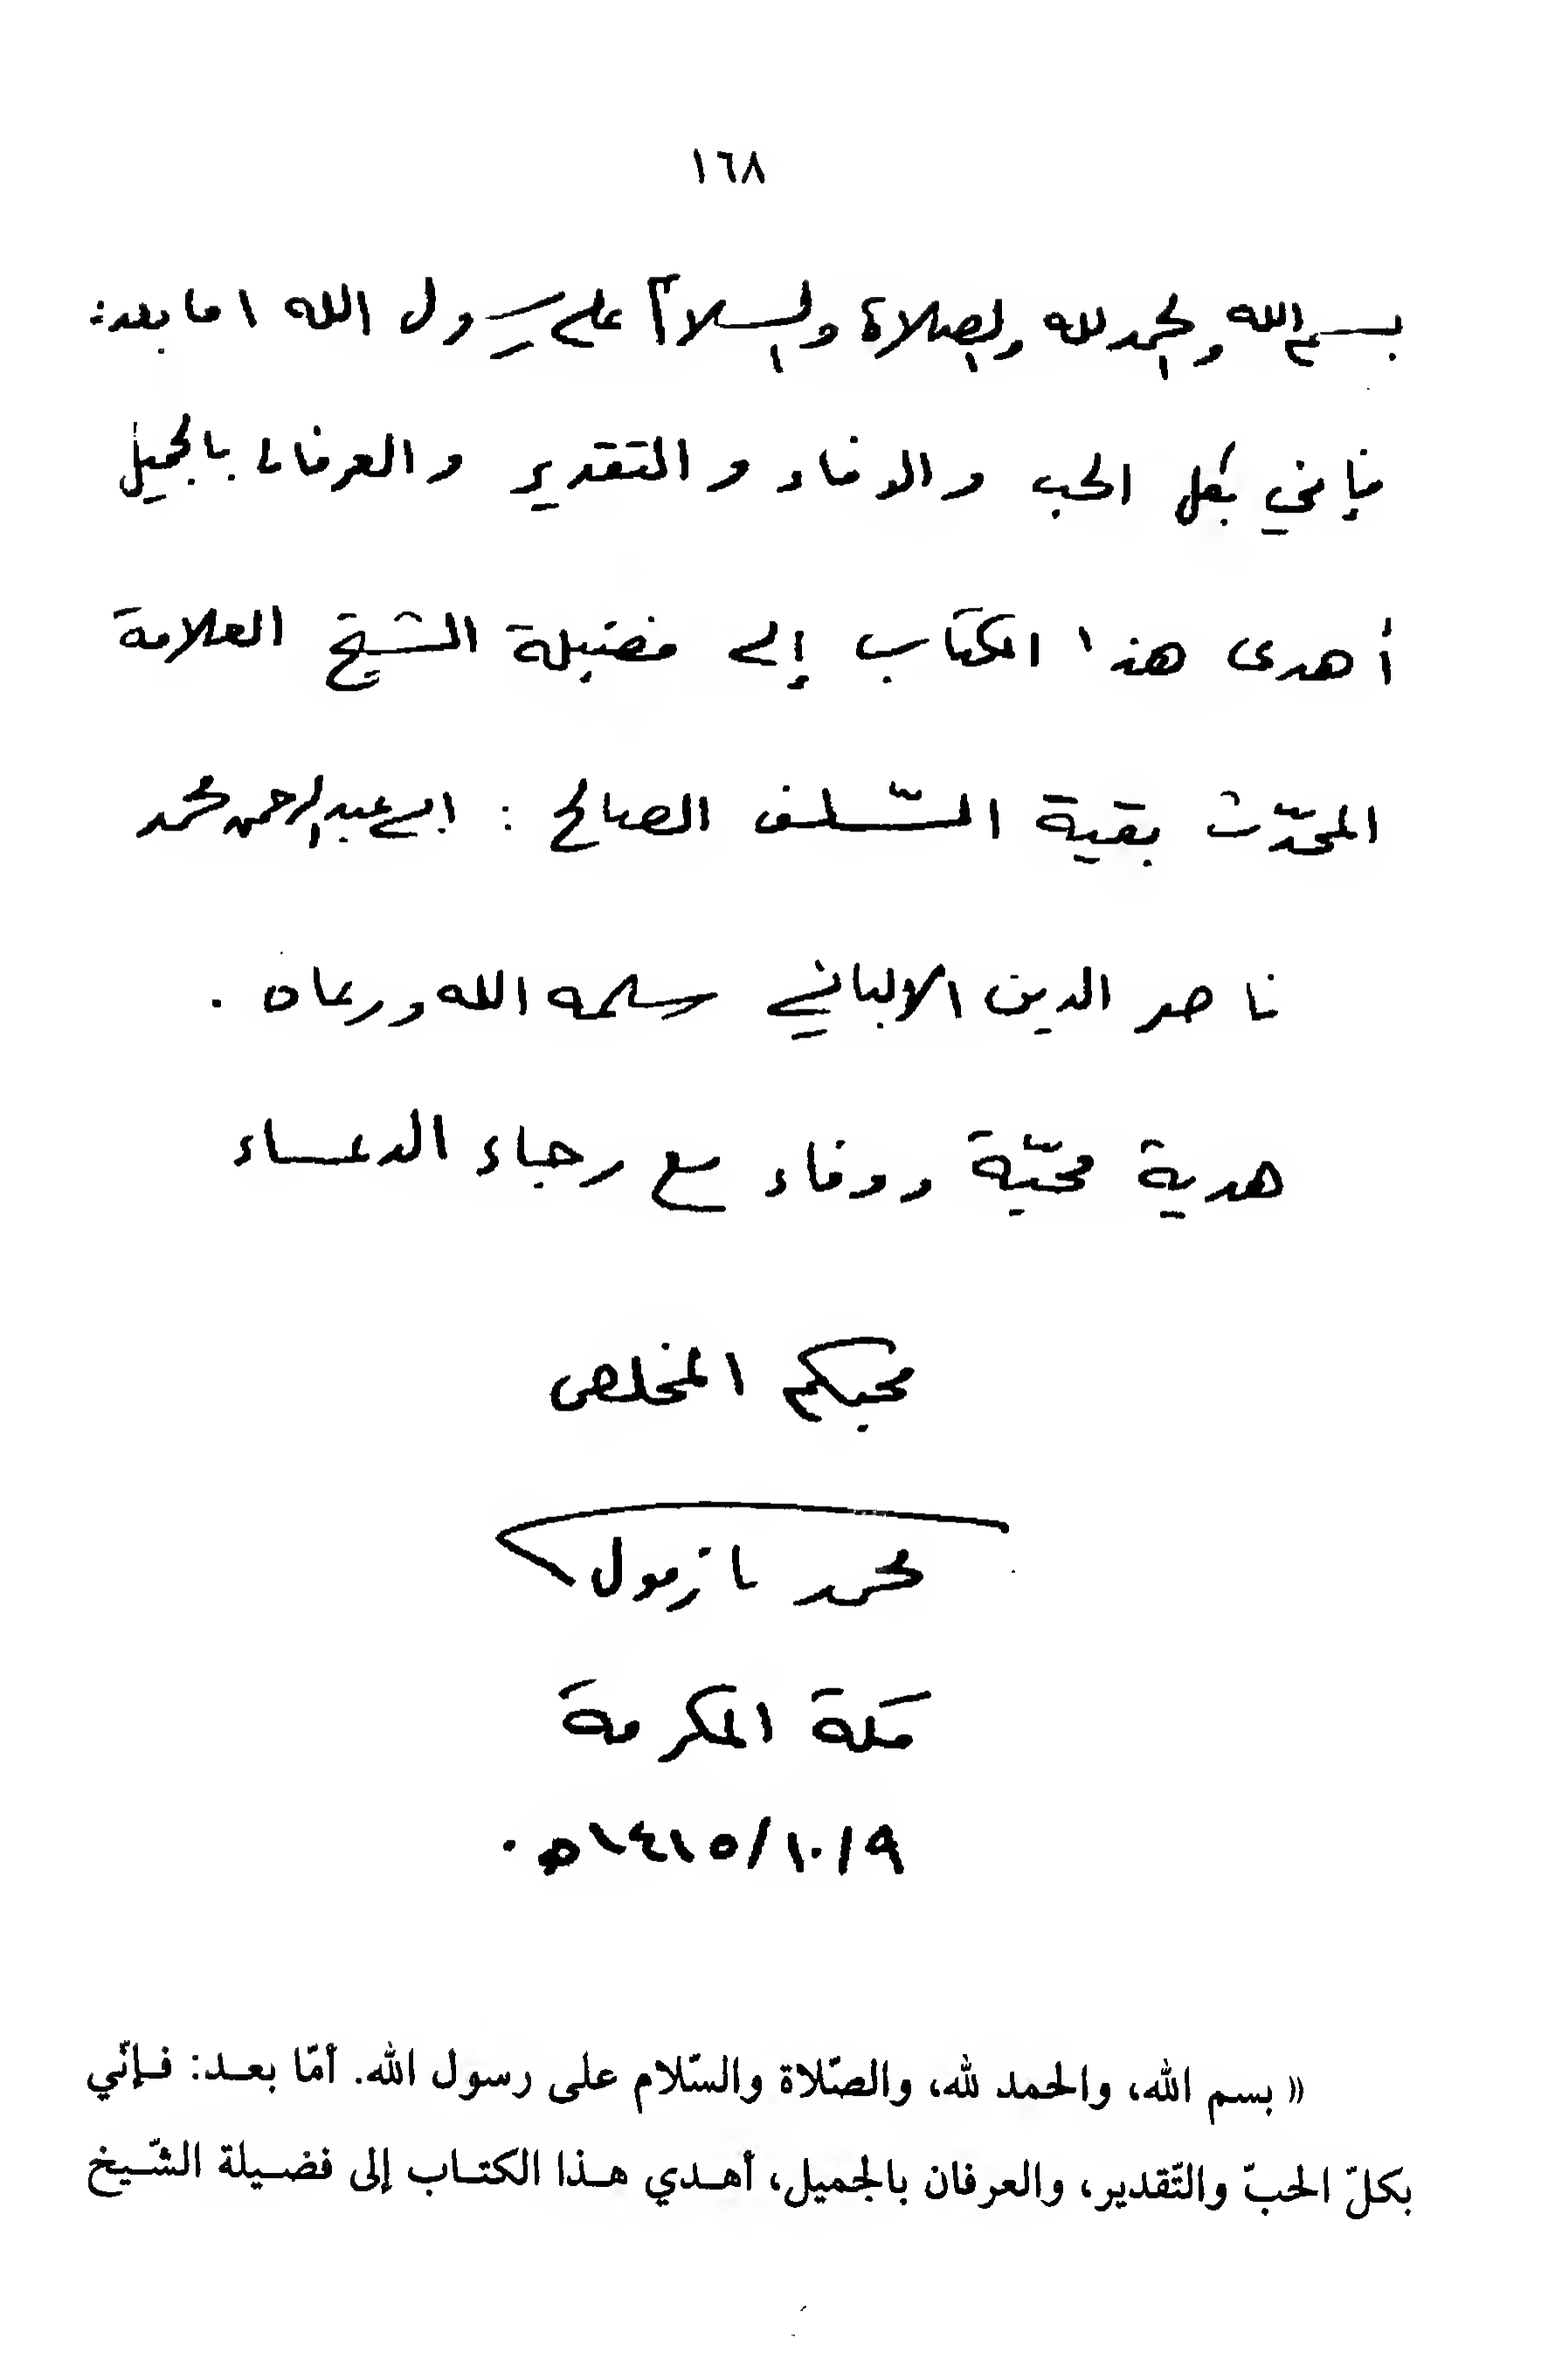 ١٦٨
بسم الله والحمد لله والصلاة والسلام على رسول الله اما بعد:
فإني بكل الحب والوفاء والتقدير والعرفان بالجميل
أهدى هذا الكتاب إلى فضيلة الشيخ العلامة
المحدّث بقية السّلف الصالح : ابي عبد الرحمن محمد
ناصر الدين الالباني سلمه الله ورعاه .
هدية محبّة ووفاء مع رجاء الدعاء
محبكم المخلص
محمد بازمول
مكة المكرمة
٩/١٠/١٤١٥هـ.
« بسم الله، والحمد لله، والصّلاة والسّلام على رسول الله. أمّا بعد: فإنّي
بكلّ الحبّ والتّقدير، والعرفان بالجميل، أهدي هذا الكتاب إلى فضيلة الشّيخ